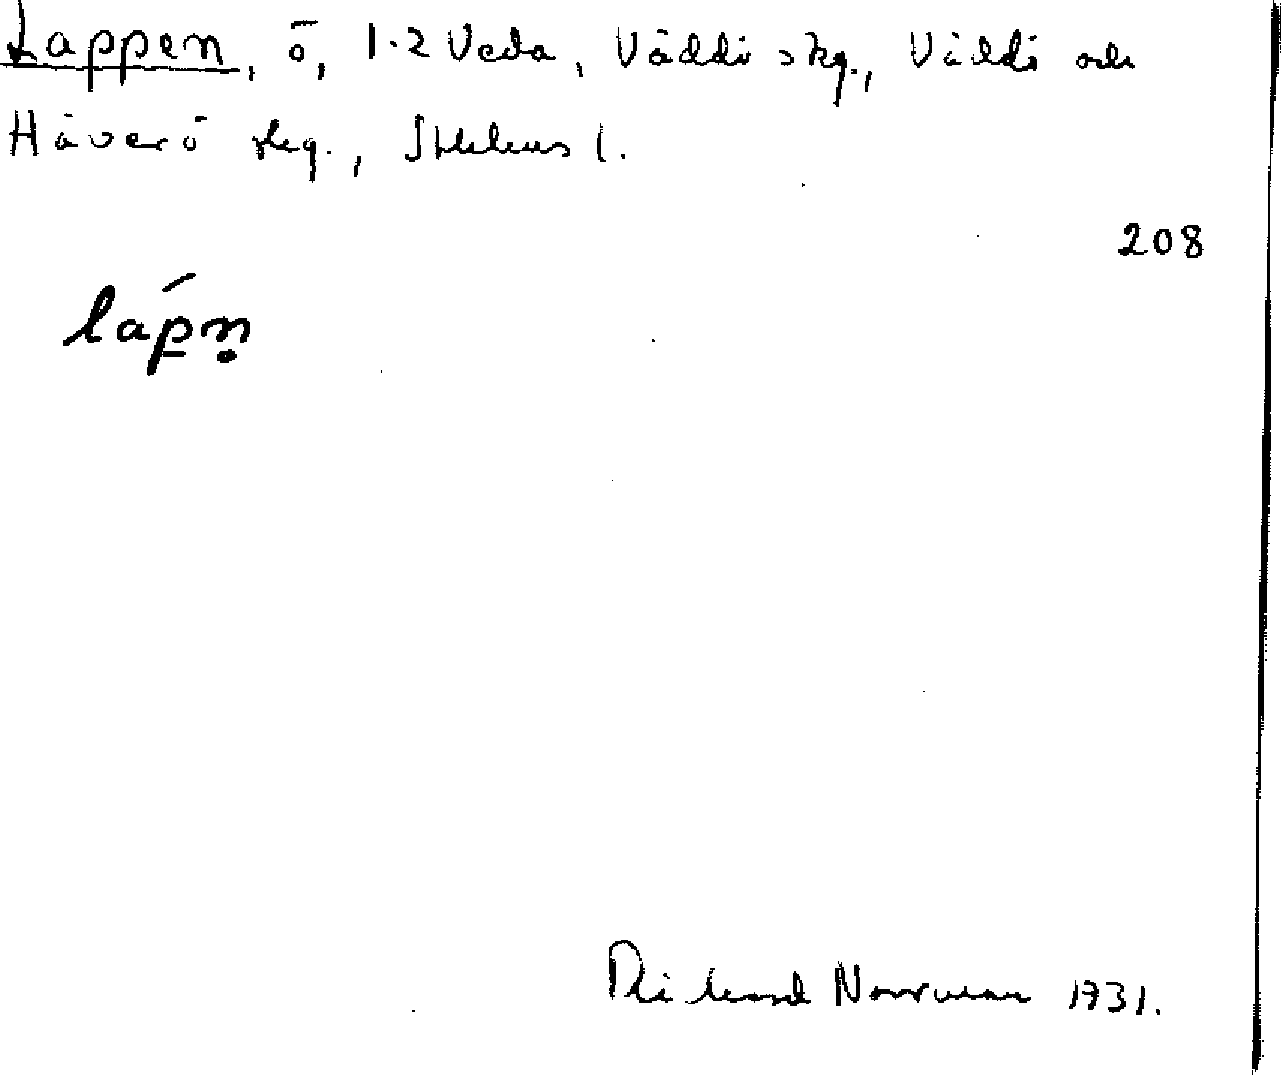 Lappen, ö, 1-2 Veda, Väddö skg., Väddö och
Häverö skg., Sthlms l.
208
lápn̥
Rickard Norrman 1931.